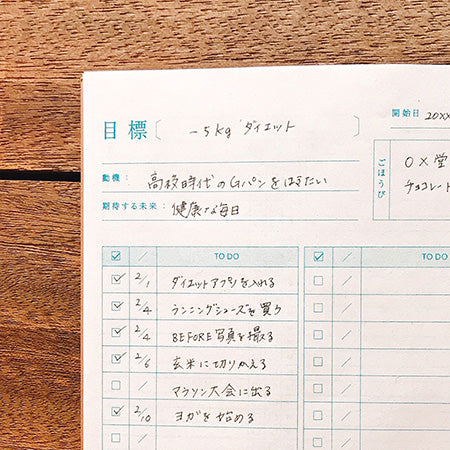 目標〔 -5kg ダイエット 〕
開始日 20XX
動機： 高校時代のGパンをはきたい
期待する未来： 健康な毎日
ごほうび
○×堂
チョコレート
☑ / TO DO
☑ 2/1 ダイエットアプリを入れる
☑ 2/4 ランニングシューズを買う
☑ 2/4 BEFORE写真を撮る
☑ 2/6 玄米に切りかえる
☐ / マラソン大会に出る
☑ 2/10 ヨガを始める
☐ /
☑ / TO DO
☐ /
☐ /
☐ /
☐ /
☐ /
☐ /
☐ /